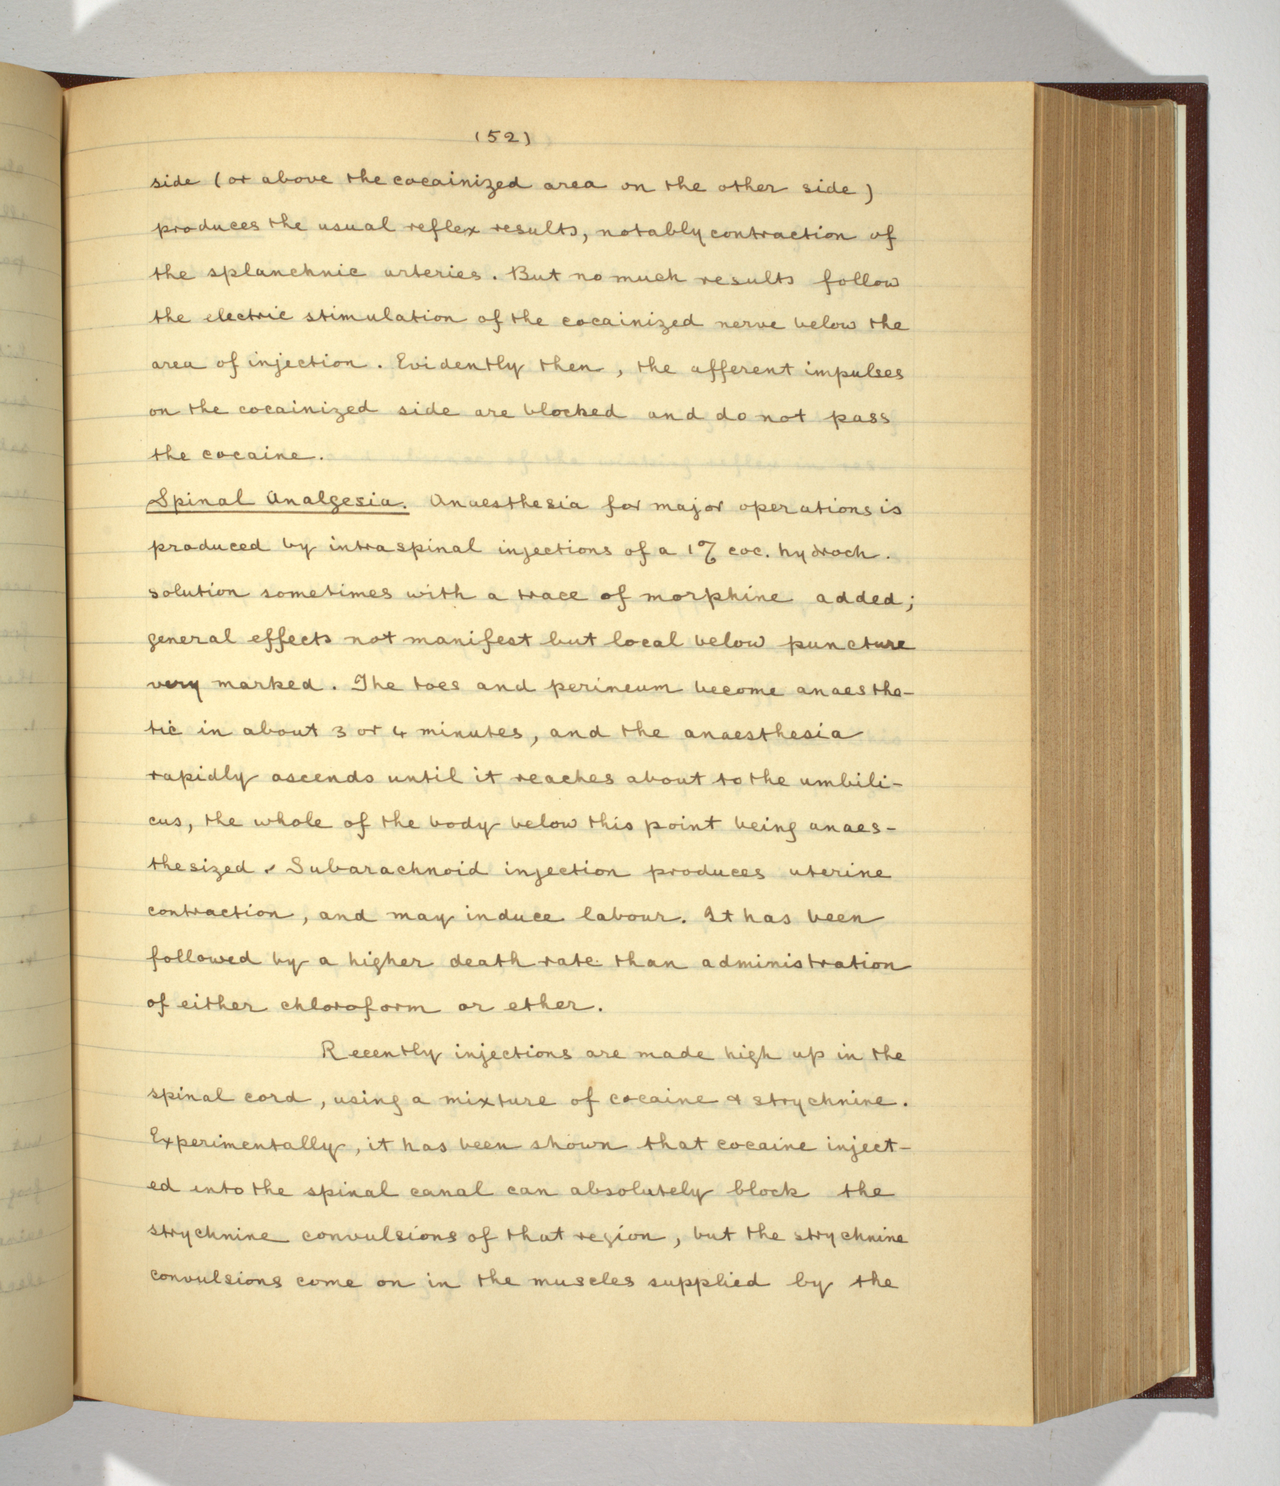 (52)
side (or above the cocainized area on the other side)
produces the usual reflex results, notably contraction of
the splanchnic arteries. But no much results follow
the electric stimulation of the cocainized nerve below the
area of injection. Evidently then, the afferent impulses
on the cocainized side are blocked and do not pass
the cocaine.
Spinal Analgesia. Anaesthesia for major operations is
produced by intraspinal injections of a 1% coc. hydroch.
solution sometimes with a trace of morphine added;
general effects not manifest but local below puncture
very marked. The toes and perineum become anaesthe-
tic in about 3 or 4 minutes, and the anaesthesia
rapidly ascends until it reaches about to the umbili-
cus, the whole of the body below this point being anaes-
thesized. Subarachnoid injection produces uterine
contraction, and may induce labour. It has been
followed by a higher death rate than administration
of either chloroform or ether.
Recently injections are made high up in the
spinal cord, using a mixture of cocaine & strychnine.
Experimentally, it has been shown that cocaine inject-
ed into the spinal canal can absolutely block the
strychnine convulsions of that region, but the strychnine
convulsions come on in the muscles supplied by the